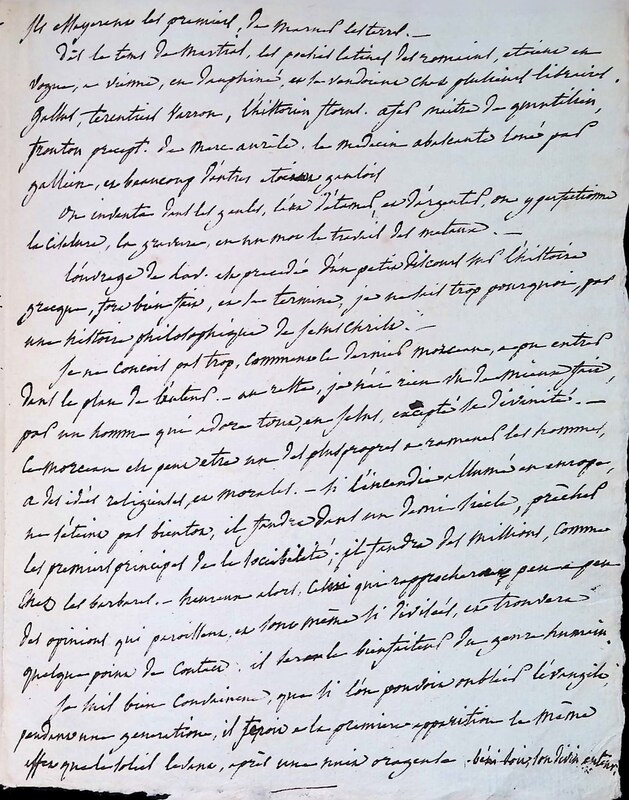 Ils essayerent les premiers, de marner les terres. —
Dès le tems de martial, les poesies latines des romains, etoient en
vogue, a vienne, en dauphiné, et se vendoient chez plusieurs libraires.
gallus, terentius Varron, l'historien florus. maitre de quintilien,
fronton precept. de marc aurèle. le medecin abascante loué par
gallien, et beaucoup d'autres etoient gaulois
On inventa dans les gaules, l'art d'etamer, et d'argenter, on y perfectionna
la ciselure, la gravure, en un mot le travail des metaux. —
L'ouvrage de est precedé d'un petit discours sur l'histoire
grecque, fort bien fait, et se termine, je ne sais trop pourquoi, par
une histoire philosophique de Jesus christ. —
Je ne concois pas trop, comment ce dernier morceau, a pu entrer
dans le plan de l'auteur. — au reste, je n'ai rien vu de mieux fait
par un homme que adore tout en Jesus, excepté sa divinité. —
Ce morceau est peut etre un des plus propres a ramener les hommes,
a des idées religieuses, et morales. — Si l'incendie allumé en europe,
ne s'éteint pas bientot, il faudra dans un demi siècle, prêcher
les premiers principes de la sociabilité; il faudra des millions, comme
chez les barbares. — heureux alors, celui qui rapprochera peu a peu
des opinions qui paroissent, et sont même si divisées, et trouvera
quelque point de contact. il sera le bienfaiteur du genre humain.
Je suis bien convaincu, que si l'on pouvoit oublier l'évangile,
pendant une generation, il feroit a la premiere apparition le même
effet que le soleil levant, après une nuit orageuse. béni soit, son divin auteur.